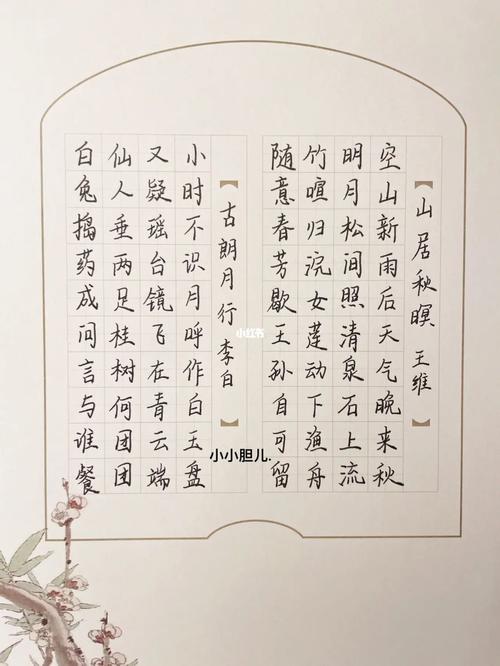 山居秋暝 王维
空山新雨后天气晚来秋
明月松间照清泉石上流
竹暄归浣女莲动下渔舟
随意春芳歇王孙自可留
古朗月行 李白
小时不识月呼作白玉盘
又疑瑶台镜飞在青云端
仙人垂两足桂树何团团
白兔捣药成问言与谁餐
小红书
小小胆儿.